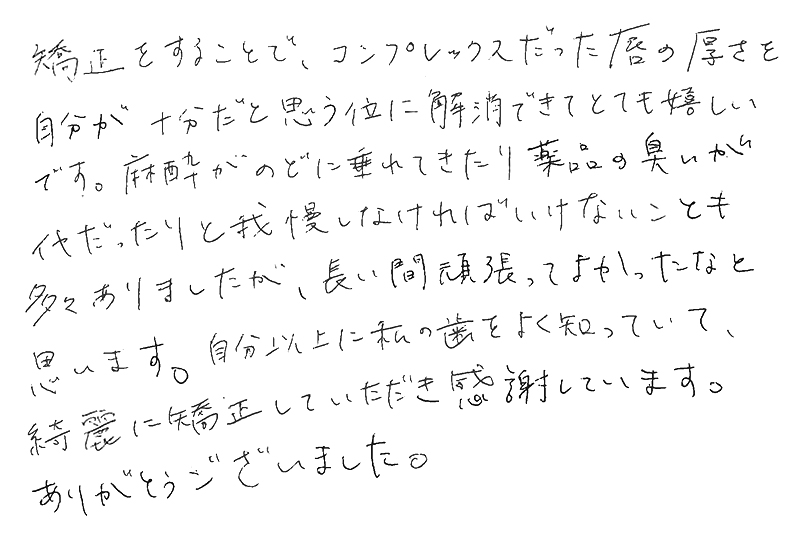 矯正をすることで、コンプレックスだった唇の厚さを
自分が十分だと思う位に解消できてとても嬉しい
です。麻酔がのどに垂れてきたり薬品の臭いが
だったりと我慢しなければいけないことも
多々ありましたが、長い間頑張ってよかったなと
思います。自分以上に私の歯をよく知っていて、
綺麗に矯正していただき感謝しています。
ありがとうございました。